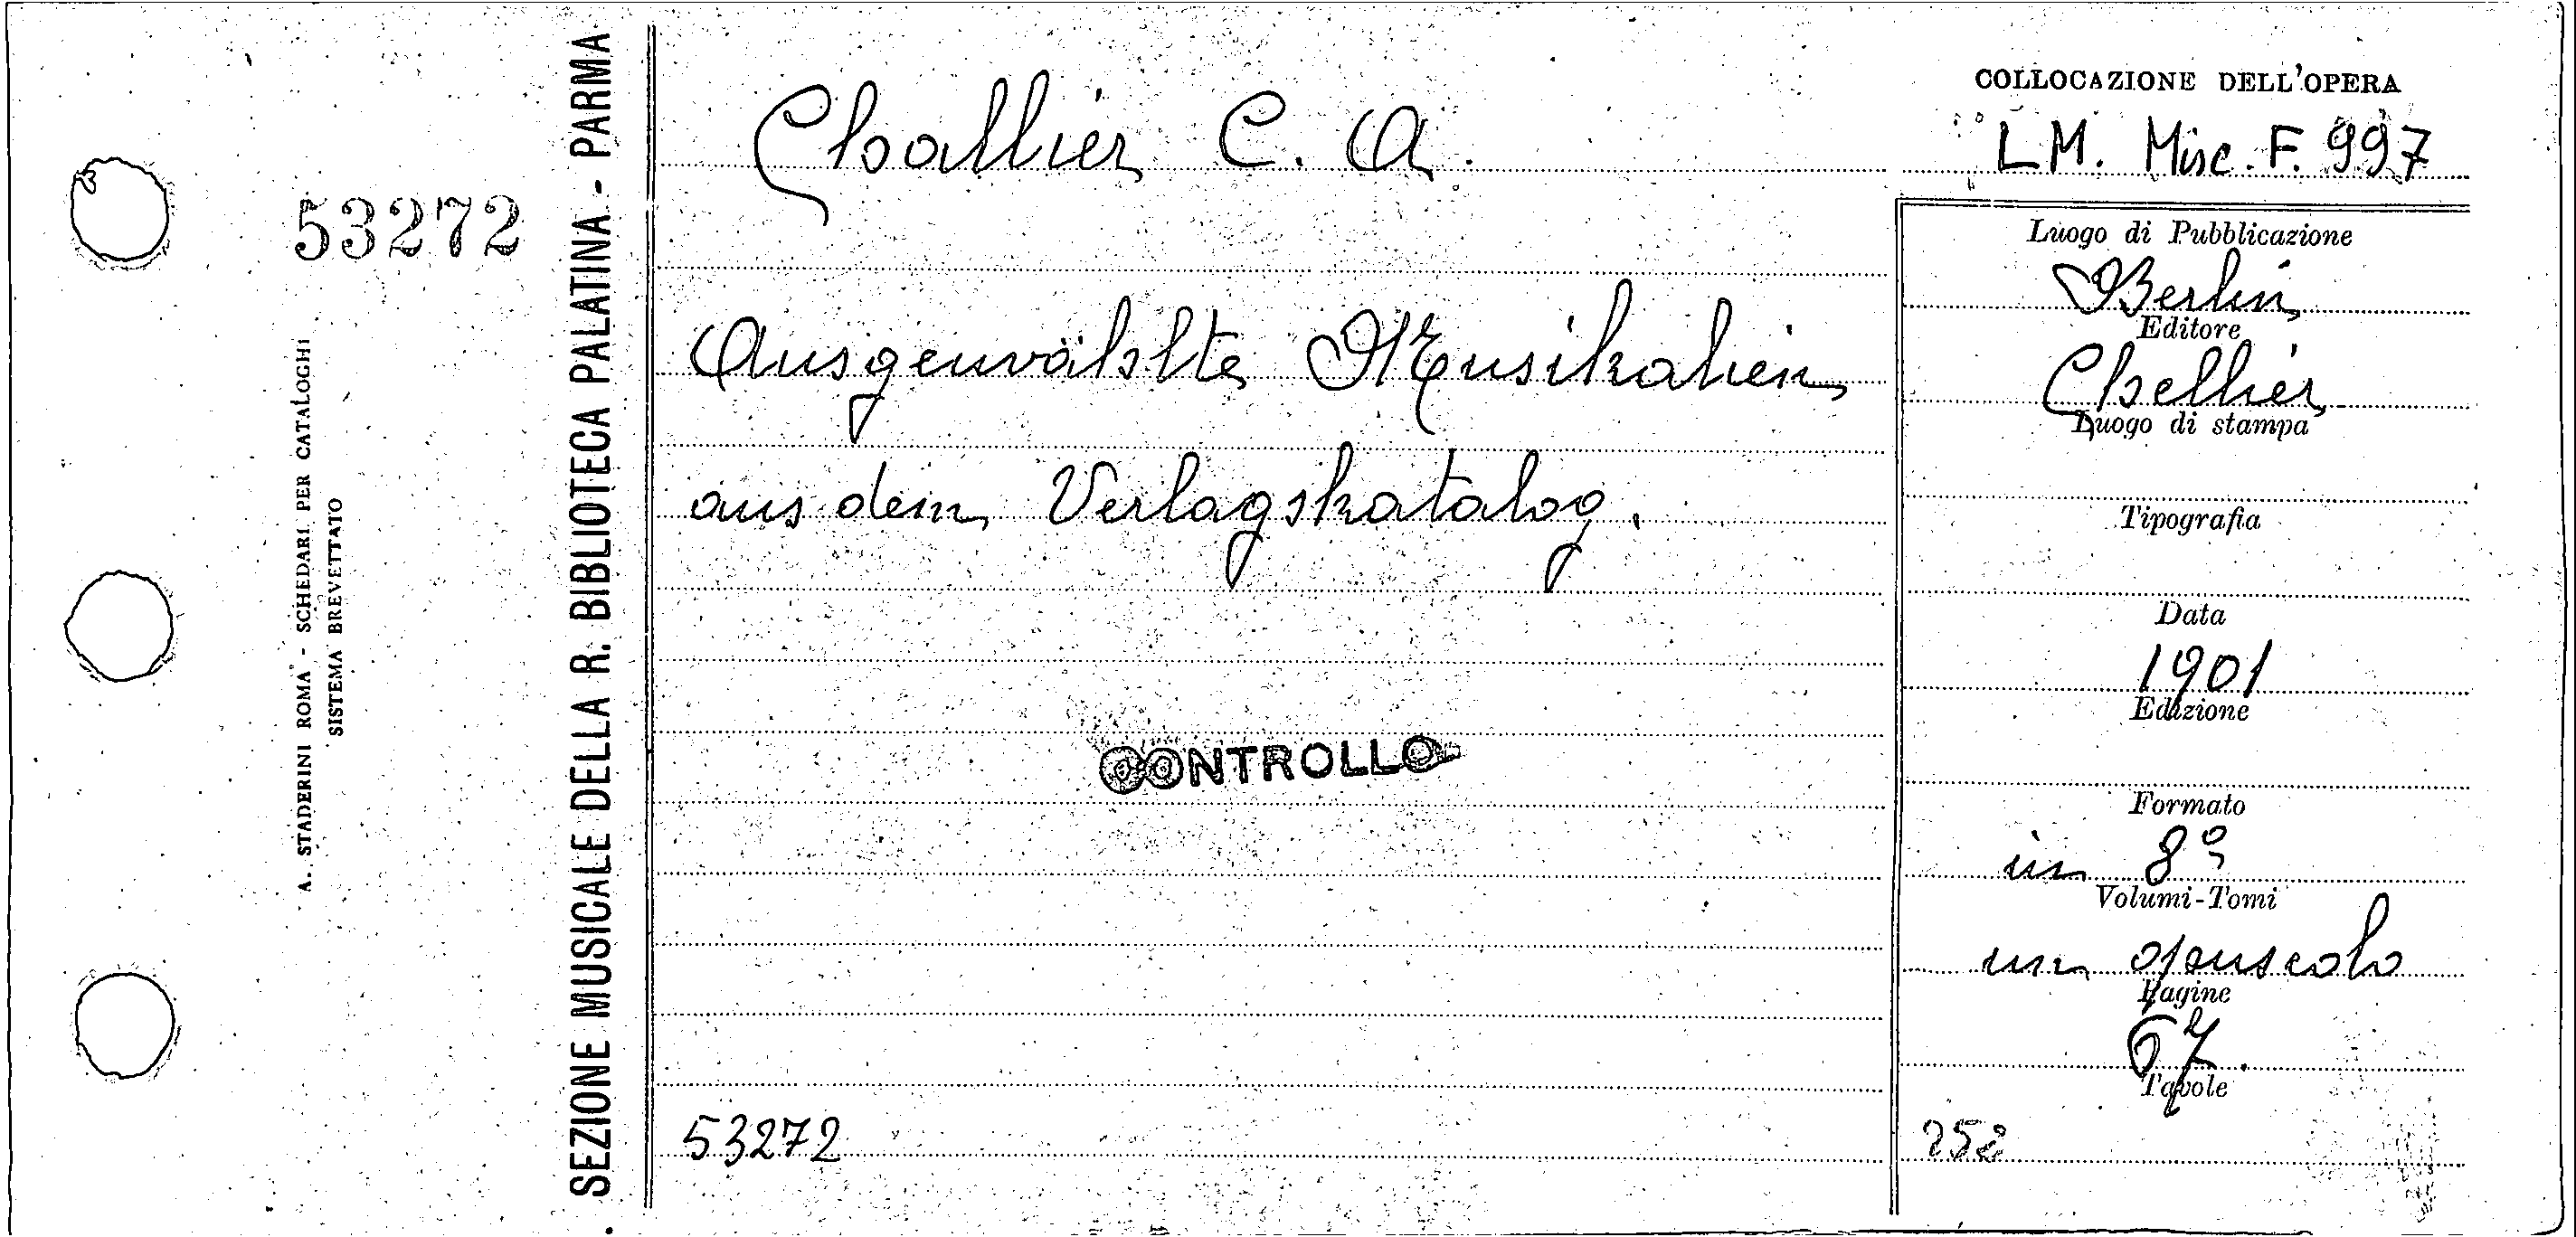 53272
A. STADERINI ROMA - SCHEDARI PER CATALOGHI
SISTEMA BREVETTATO
SEZIONE MUSICALE DELLA R. BIBLIOTECA PALATINA - PARMA
Challier C. A.
Ausgewählte Musikalien
aus dem Verlagskatalog.
CONTROLLO
53272
COLLOCAZIONE DELL'OPERA
LM. Misc. F. 997
Luogo di Pubblicazione
Berlin
Editore
Chellier
Luogo di stampa
Tipografia
Data
1901
Edizione
Formato
in 8°
Volumi-Tomi
un opuscolo
Pagine
67.
Tavole
252